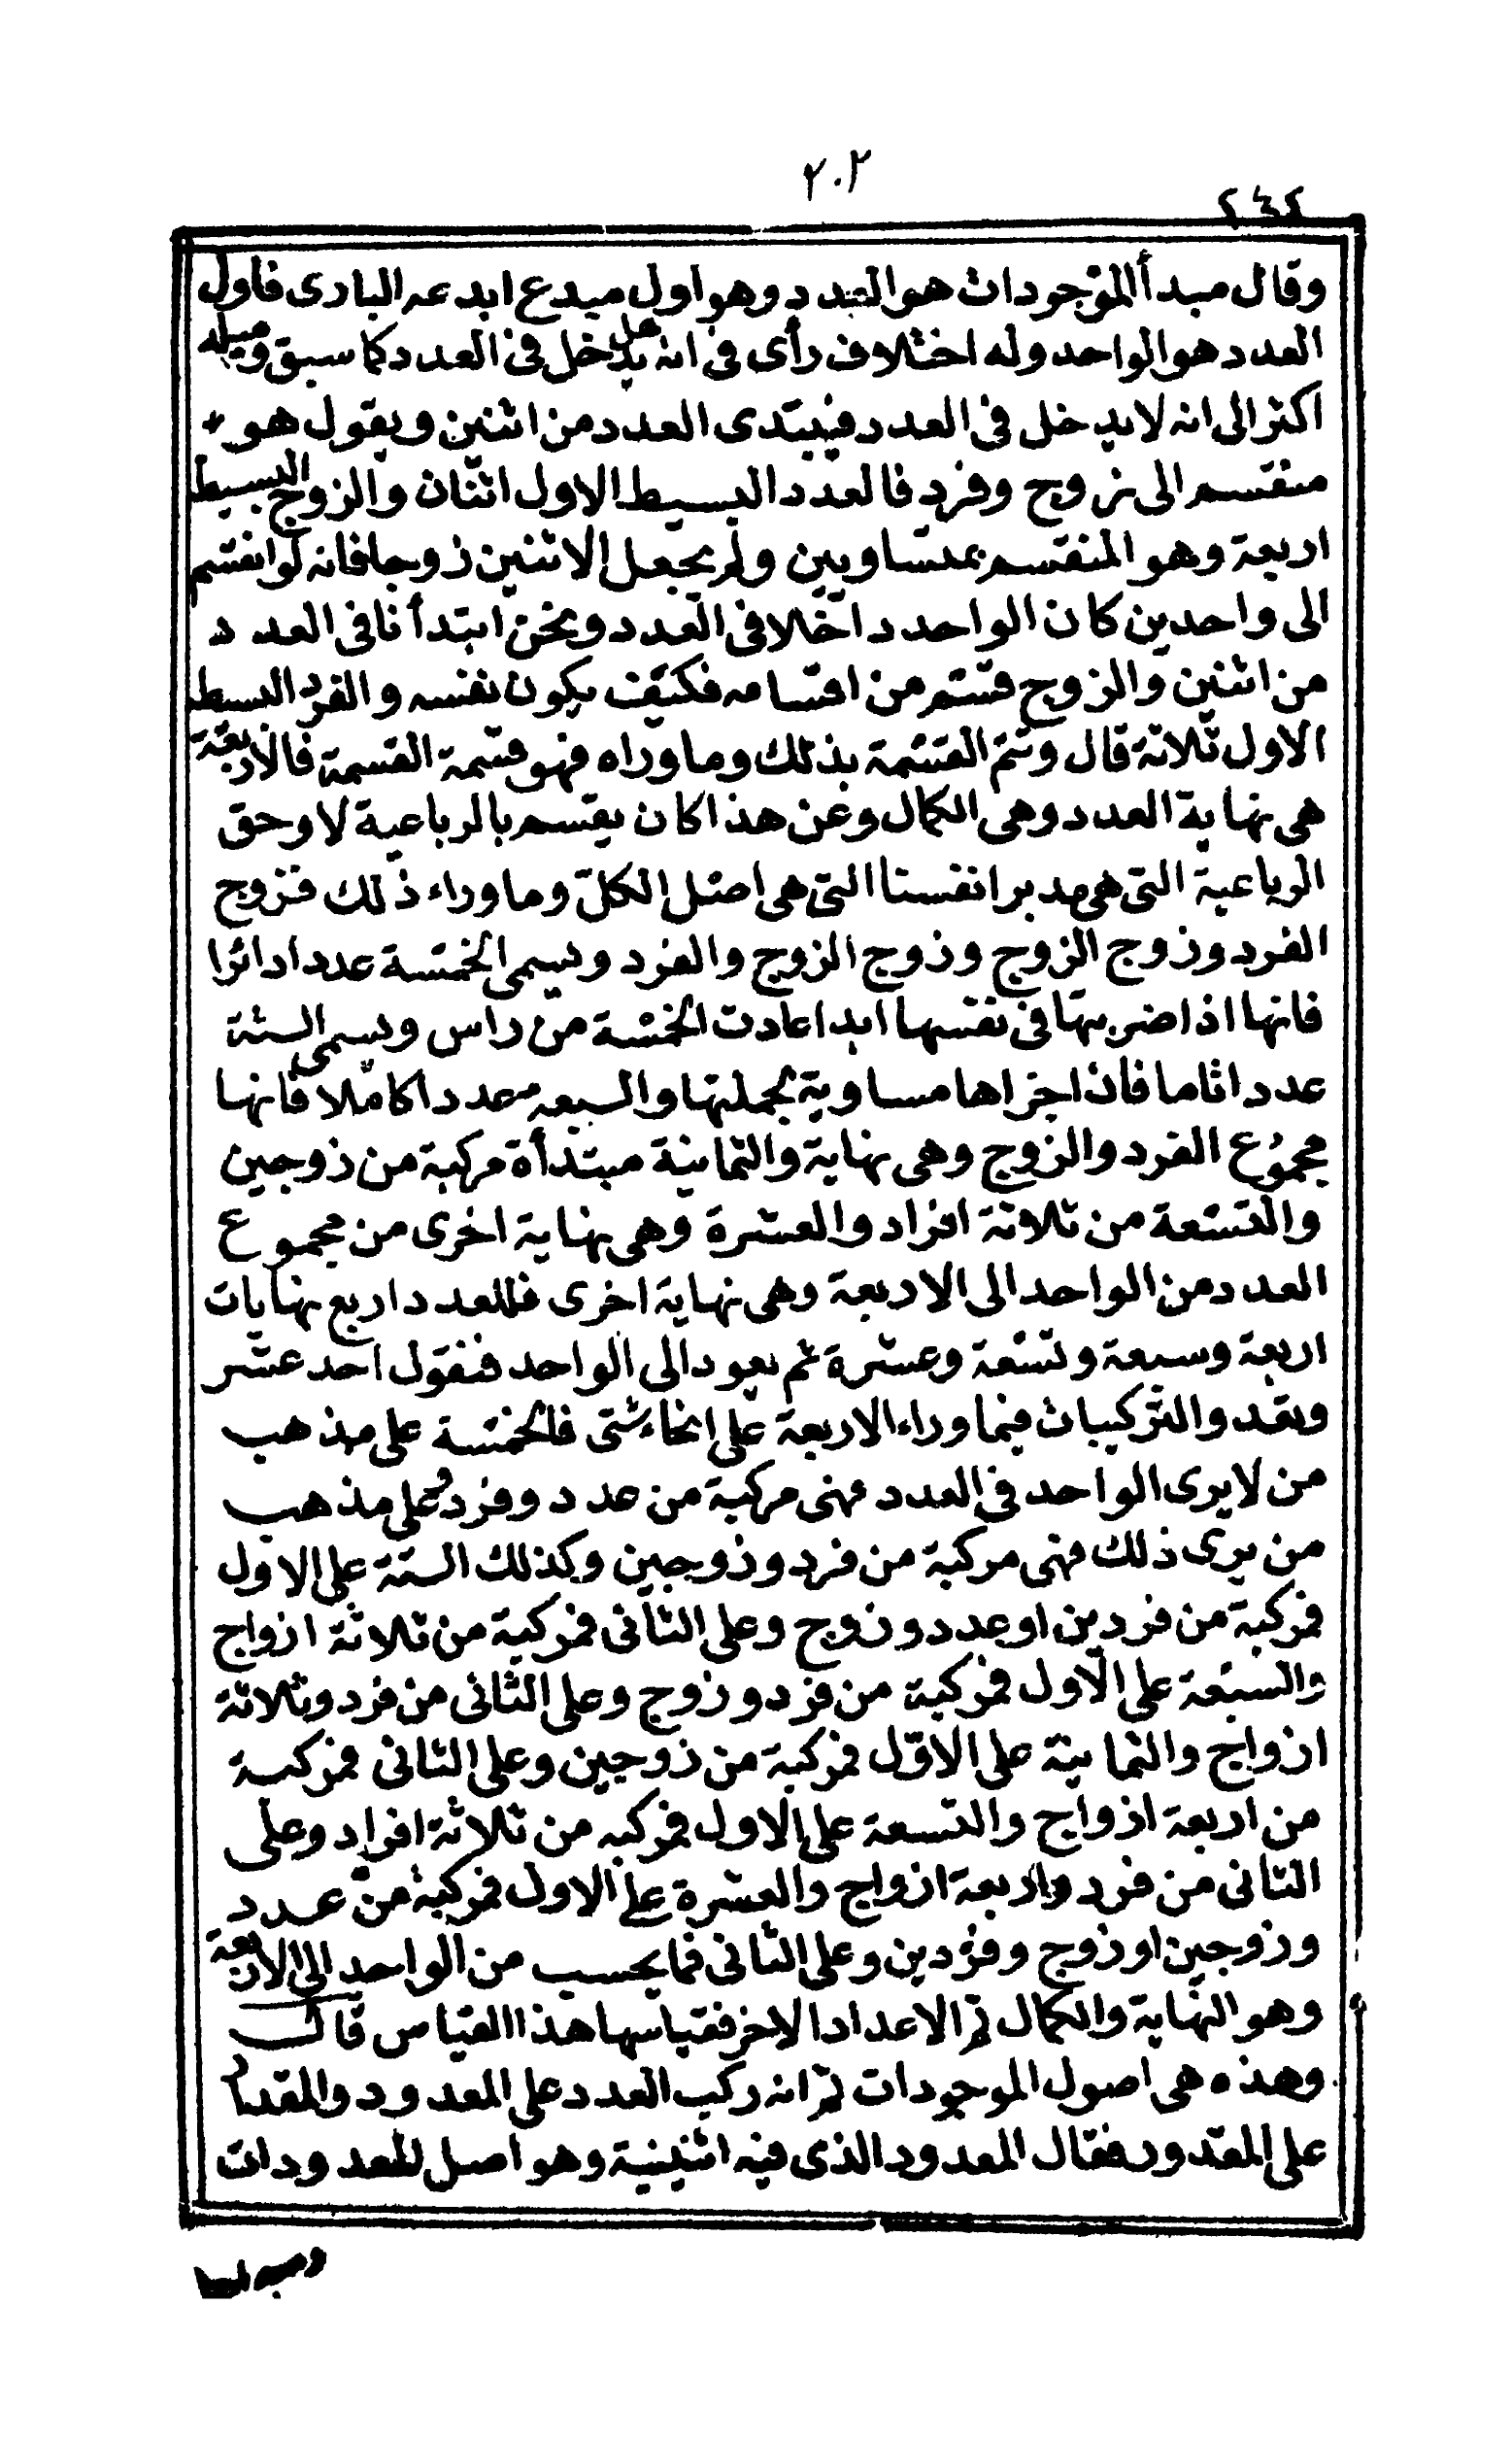 ٢٠٢
٢٤٤
وقال مبدأ الموجودات هو العدد وهو اول مبدع ابدعه البارى فاول
العدد هو الواحد وله اختلاف رأى فى انه هل يدخل فى العدد كما سبق وميله
اكثر الى انه لا يدخل فى العدد فيبتدى العدد من اثنين ويقول هو
منقسم الى زوج وفرد فالعدد البسيط الاول اثنان والزوج البسيط
اربعة وهو المنقسم بمتساويين ولم يجعل الاثنين زوجا فانه لو انقسم
الى واحدين كان الواحد داخلا فى العدد ونحن ابتدأنا فى العدد
من اثنين والزوج قسم من اقسامه فكيف يكون نفسه والفرد البسيط
الاول ثلاثة قال وتتم القسمة بذلك وما وراه فهو قسمة القسمة فالاربعة
هى نهاية العدد وهى الكمال وعن هذا كان يقسم بالرباعية لا وحق
الرباعية التى هى مدبر انفسنا التى هى اصل الكل وما وراء ذلك فزوج
الفرد وزوج الزوج وزوج الزوج والفرد ويسمى الخمسة عددا دائرا
فانها اذا ضربتها فى نفسها ابدا عادت الخمسة من راس ويسمى الستة
عددا تاما فان اجزاها مساوية لجملتها والسبعة عددا كاملا فانها
مجموع الفرد والزوج وهى نهاية والثمانية مبتدأة مركبة من زوجين
والتسعة من ثلاثة افراد والعشرة وهى نهاية اخرى من مجموع
العدد من الواحد الى الاربعة وهى نهاية اخرى فللعدد اربع نهايات
اربعة وسبعة وتسعة وعشرة ثم يعود الى الواحد فنقول احد عشر
ونعد والتركيبات فيما وراء الاربعة على انحاء شتى فالخمسة على مذهب
من لا يرى الواحد فى العدد فهى مركبة من عدد وفرد وعلى مذهب
من يرى ذلك فهى مركبة من فرد وزوجين وكذلك الستة على الاول
فمركبة من فردين او عدد وزوج وعلى الثانى فمركبة من ثلاثة ازواج
والسبعة على الاول فمركبة من فرد وزوج وعلى الثانى من فرد وثلاثة
ازواج والثمانية على الاول فمركبة من زوجين وعلى الثانى فمركبة
من اربعة ازواج والتسعة على الاول فمركبه من ثلاثة افراد وعلى
الثانى من فرد واربعة ازواج والعشرة على الاول فمركبة من عدد
وزوجين او زوج وفردين وعلى الثانى فما يحسب من الواحد الى الاربعة
وهو النهاية والكمال ثم الاعداد الاخر فقياسها هذا القياس قال
وهذه هى اصول الموجودات ثم انه ركب العدد على المعدود والمقدار
على المقدور فقال المعدود الذى فيه اثنينية وهو اصل للمعدودات